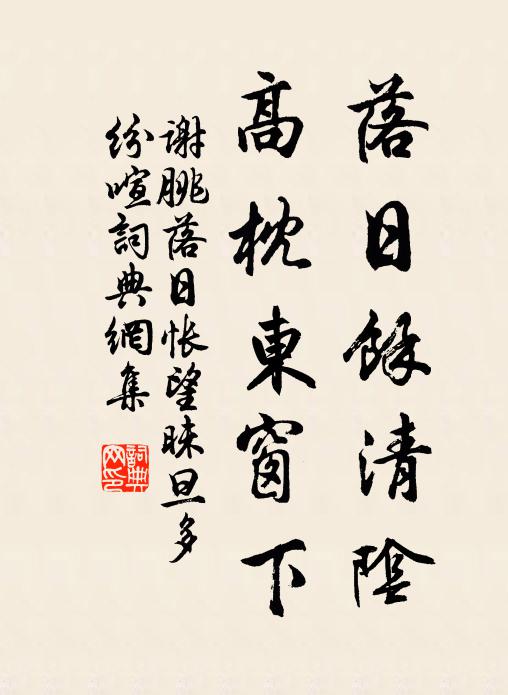 落日餘清陰
高枕東窗下
謝朓落日悵望昧旦多
紛喧詞典網集
詞典
网印